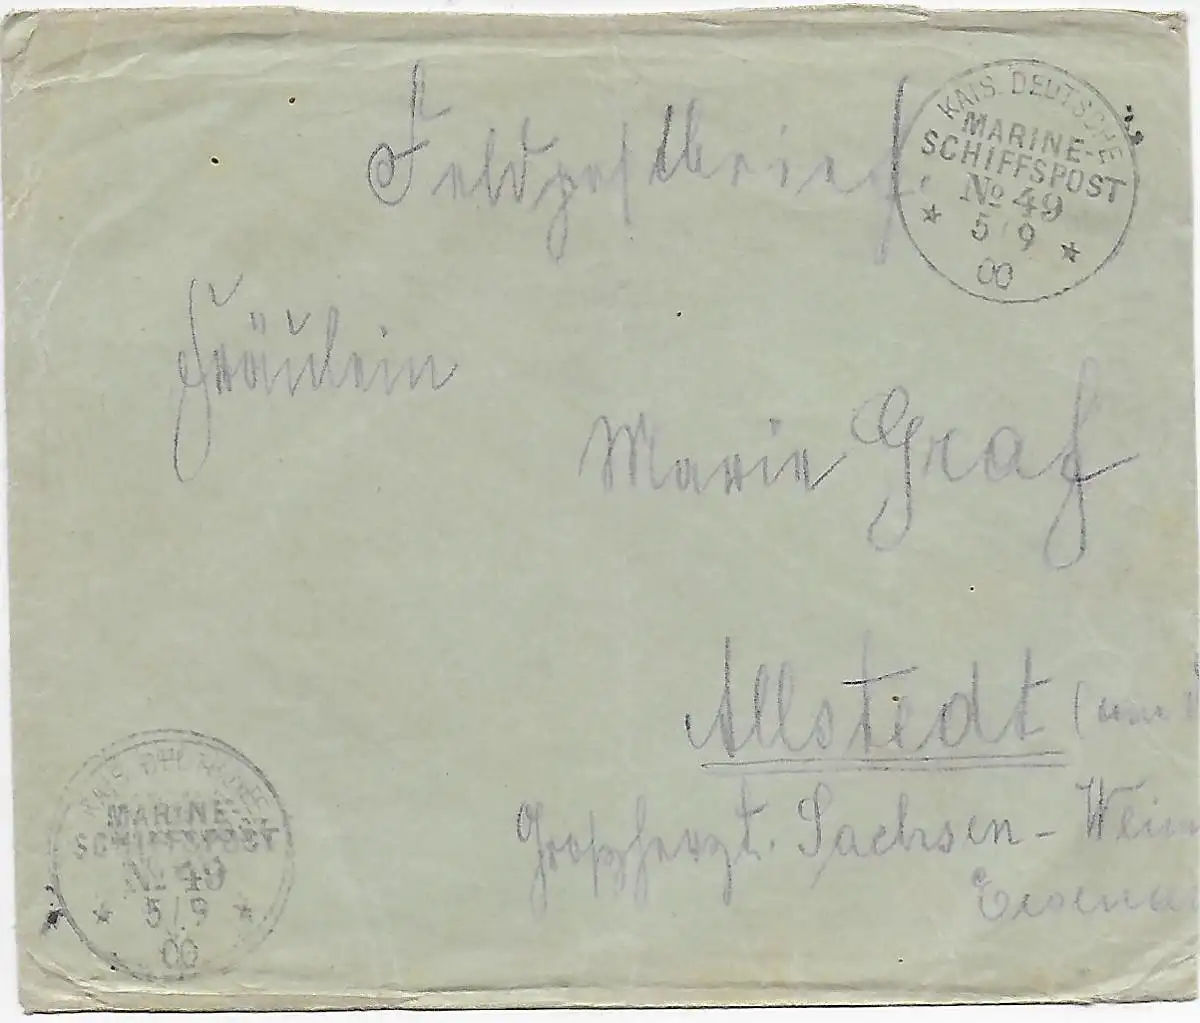 Feldpostbrief.
KAIS. DEUTSCHE
MARINE-
SCHIFFSPOST
No 49
* 5/9 *
00
Fräulein
Marie Graf
Allstedt
Großherzt. Sachsen - Weim
Eisena
MARINE-
SCHIFFSPOST
No 49
* 5/9 *
00